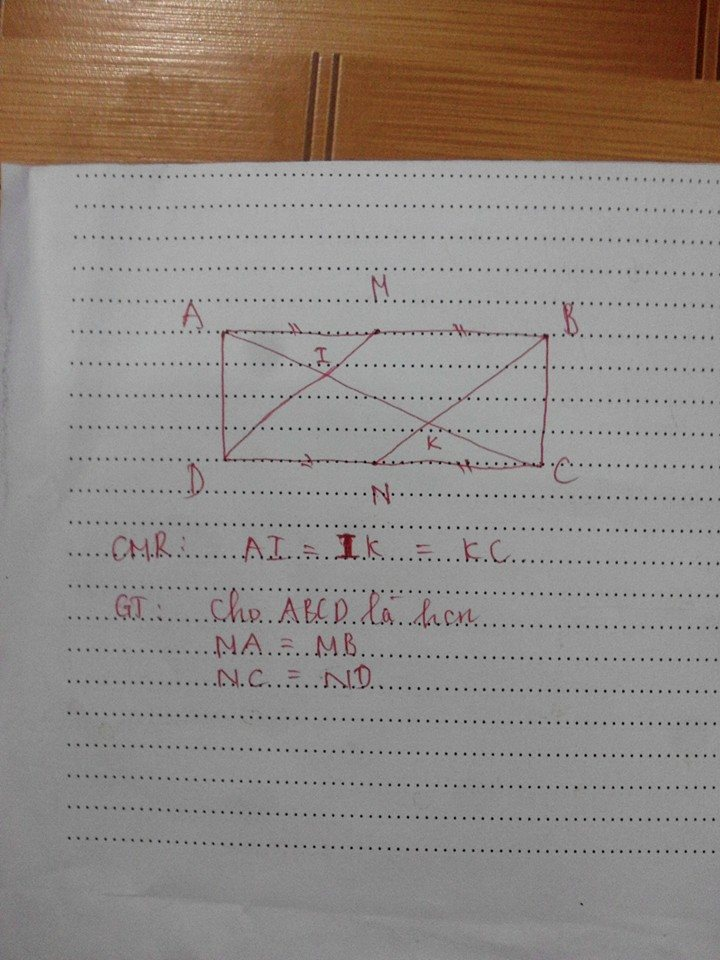 M
A
B
I
K
D
N
C
CMR: AI = IK = KC
GT: Cho ABCD là hcn
MA = MB
NC = ND